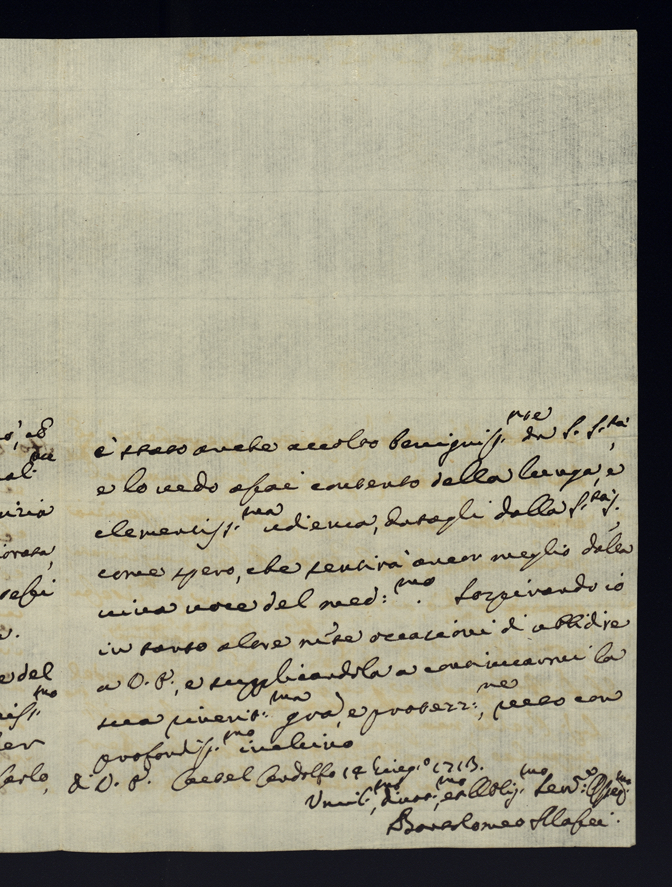 è stato anche accolto benigniss.mte da S. S.tà,
e lo vedo assai contento della lunga, e
clementiss.ma udienza, datagli dalla S.tà S.,
come spero, che sentirà ancor meglio dalla
viva voce del med:mo. Sospirando io
in tanto altre n're occasioni di ubbidire
a V. P., e supplicandola a continuarmi la
sua riverit:ma grã, e protez:ne, resto con
profondiss.mo inchino
di V. P. Castel Gandolfo 14 Giug.o 1713.
Umil.mo, divot.mo, et Obblig.mo Serv.e Osseq.mo
Bartolomeo Massei.